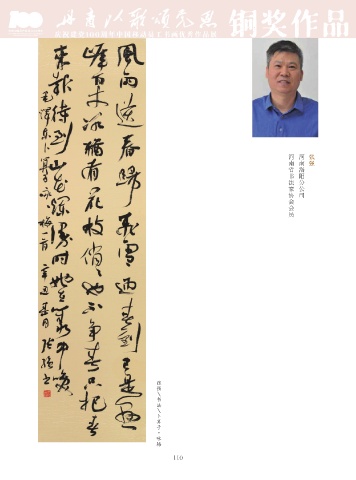 铜奖作品
庆祝建党100周年中国移动员工书画优秀作品展
风雨送春归飞雪迎春到已是悬
崖百丈冰犹有花枝俏俏也不争春只把春
来报待到山花烂漫时她在丛中笑
毛泽东卜算子咏梅一首 辛丑夏月 张强书
张强
河南洛阳分公司
河南省书法家协会会员
张强\书法\卜算子·咏梅
110